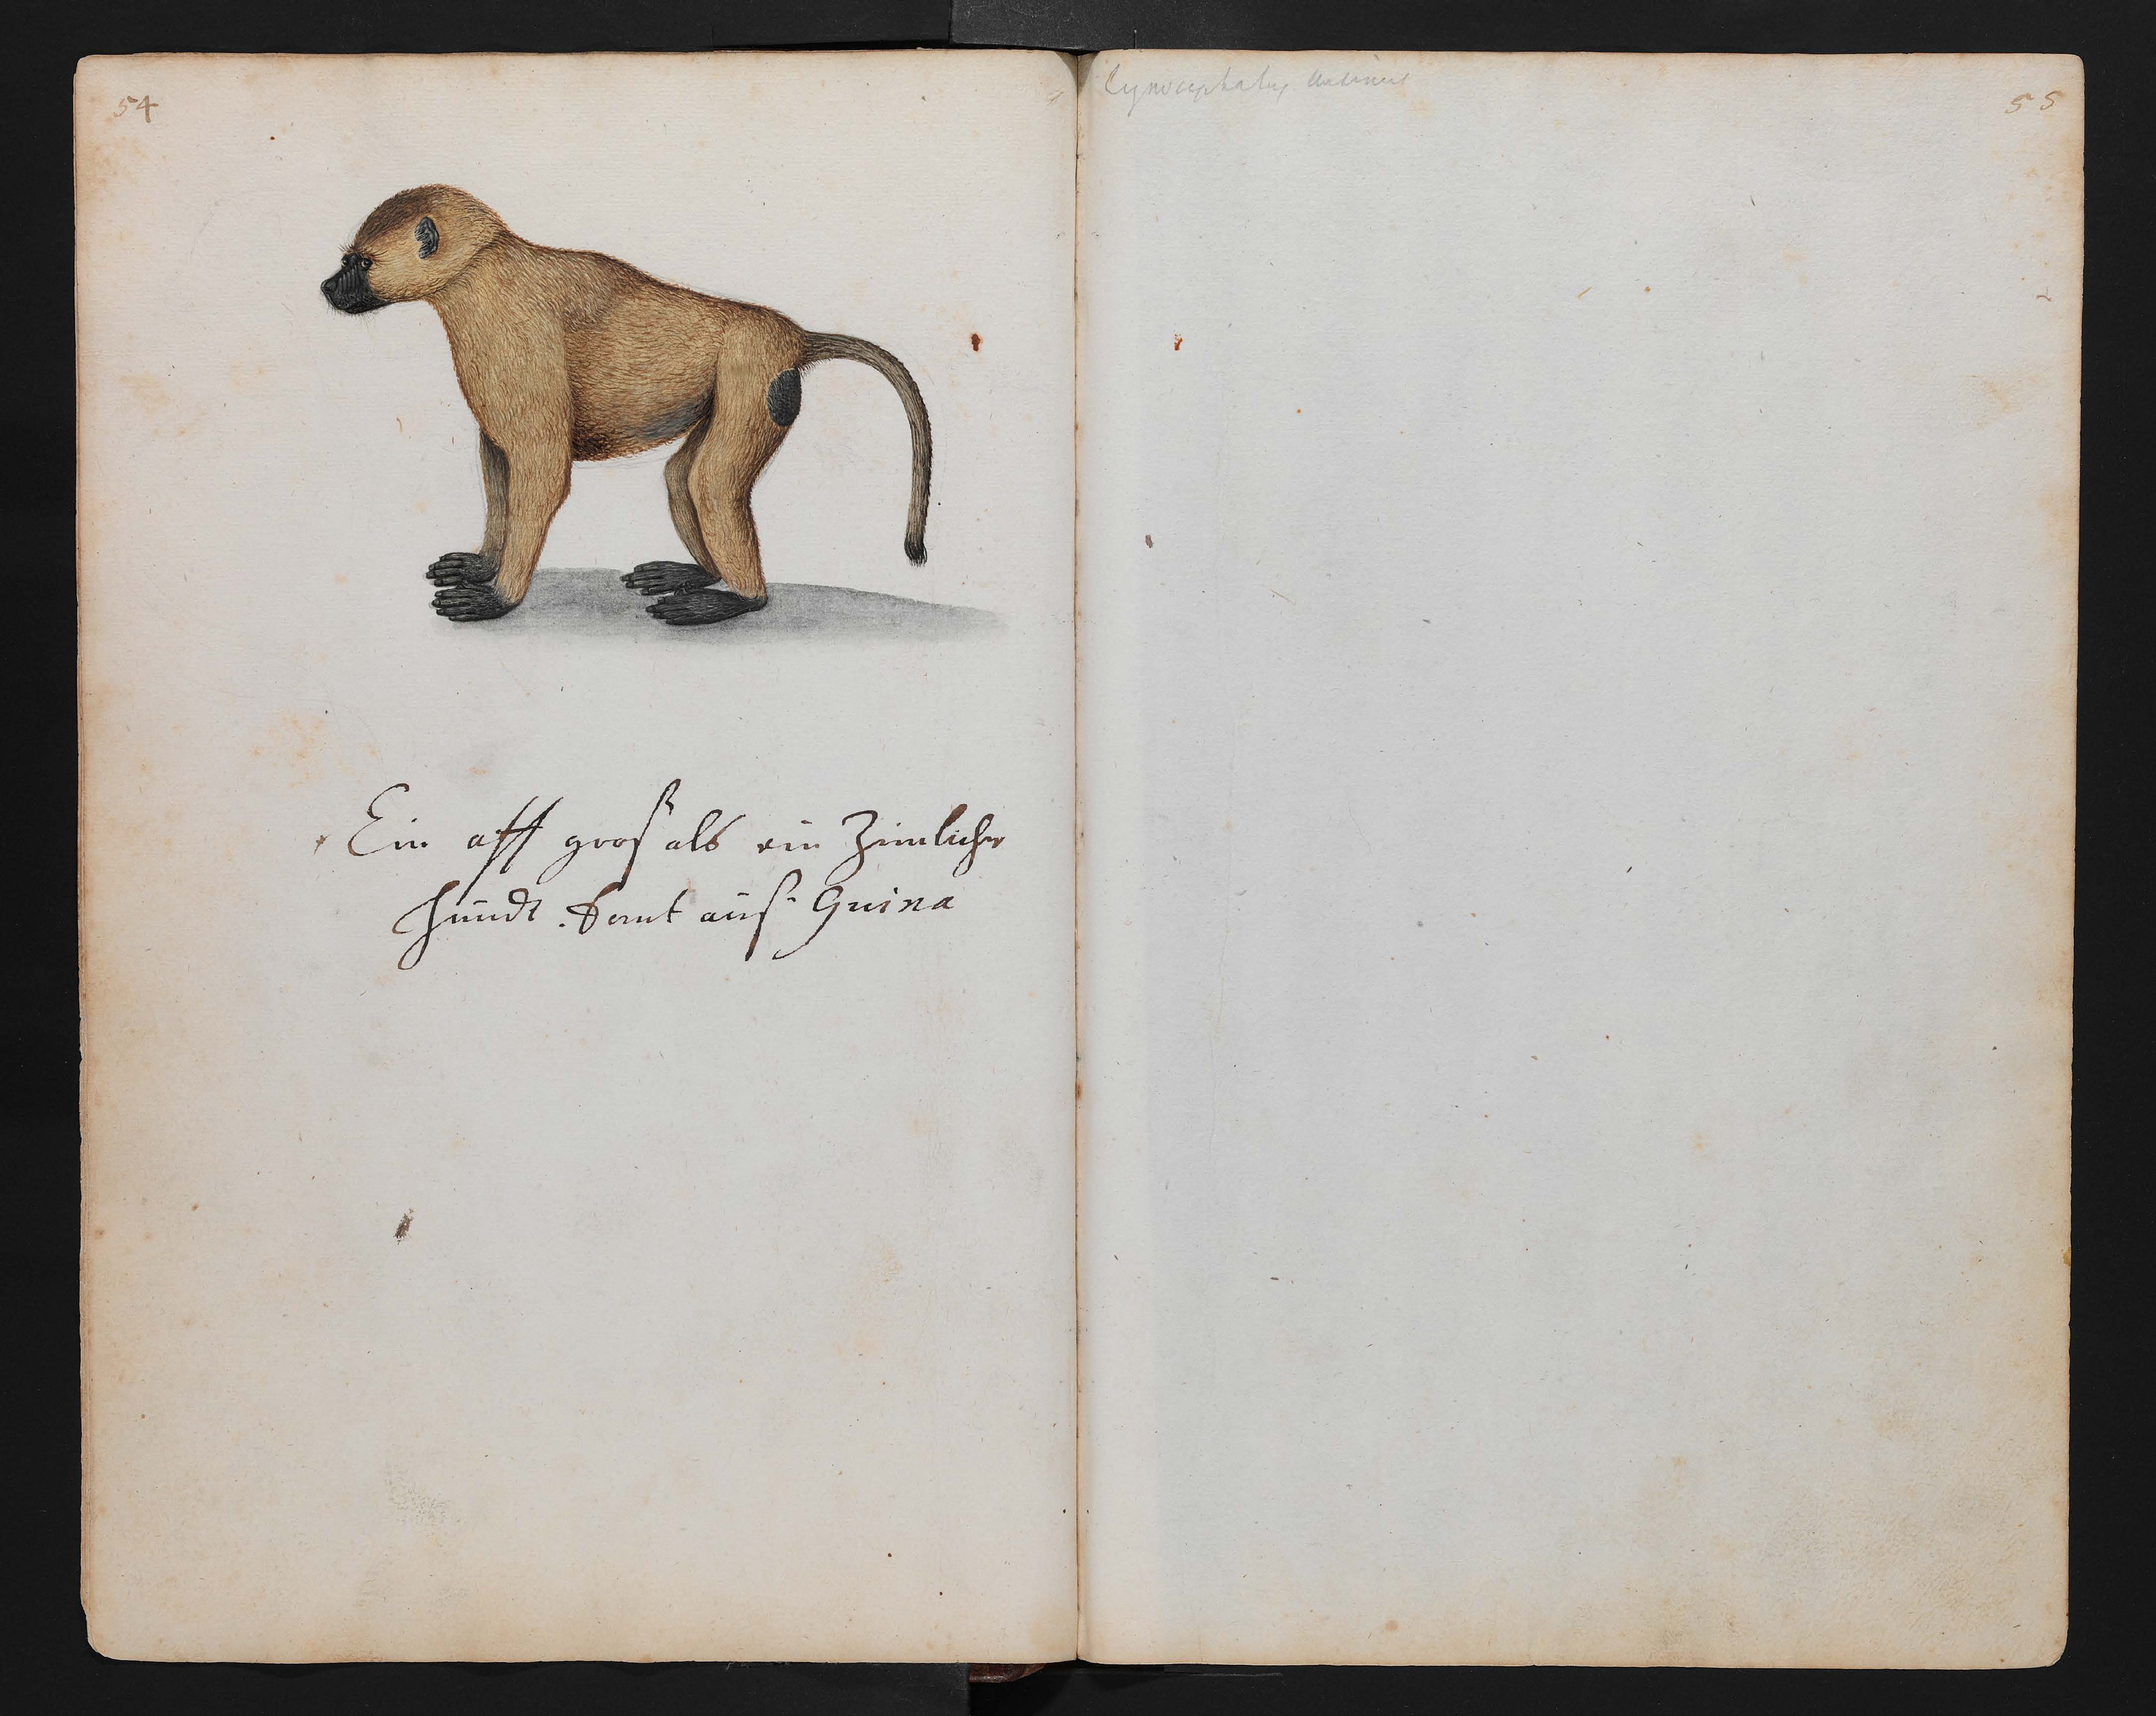 54
Ein aff groß als ein Zimlicher
hundt. komt auß Guina
Cynocephalus
55